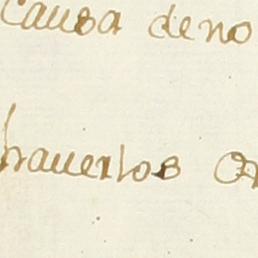 causa de no
hauerlos